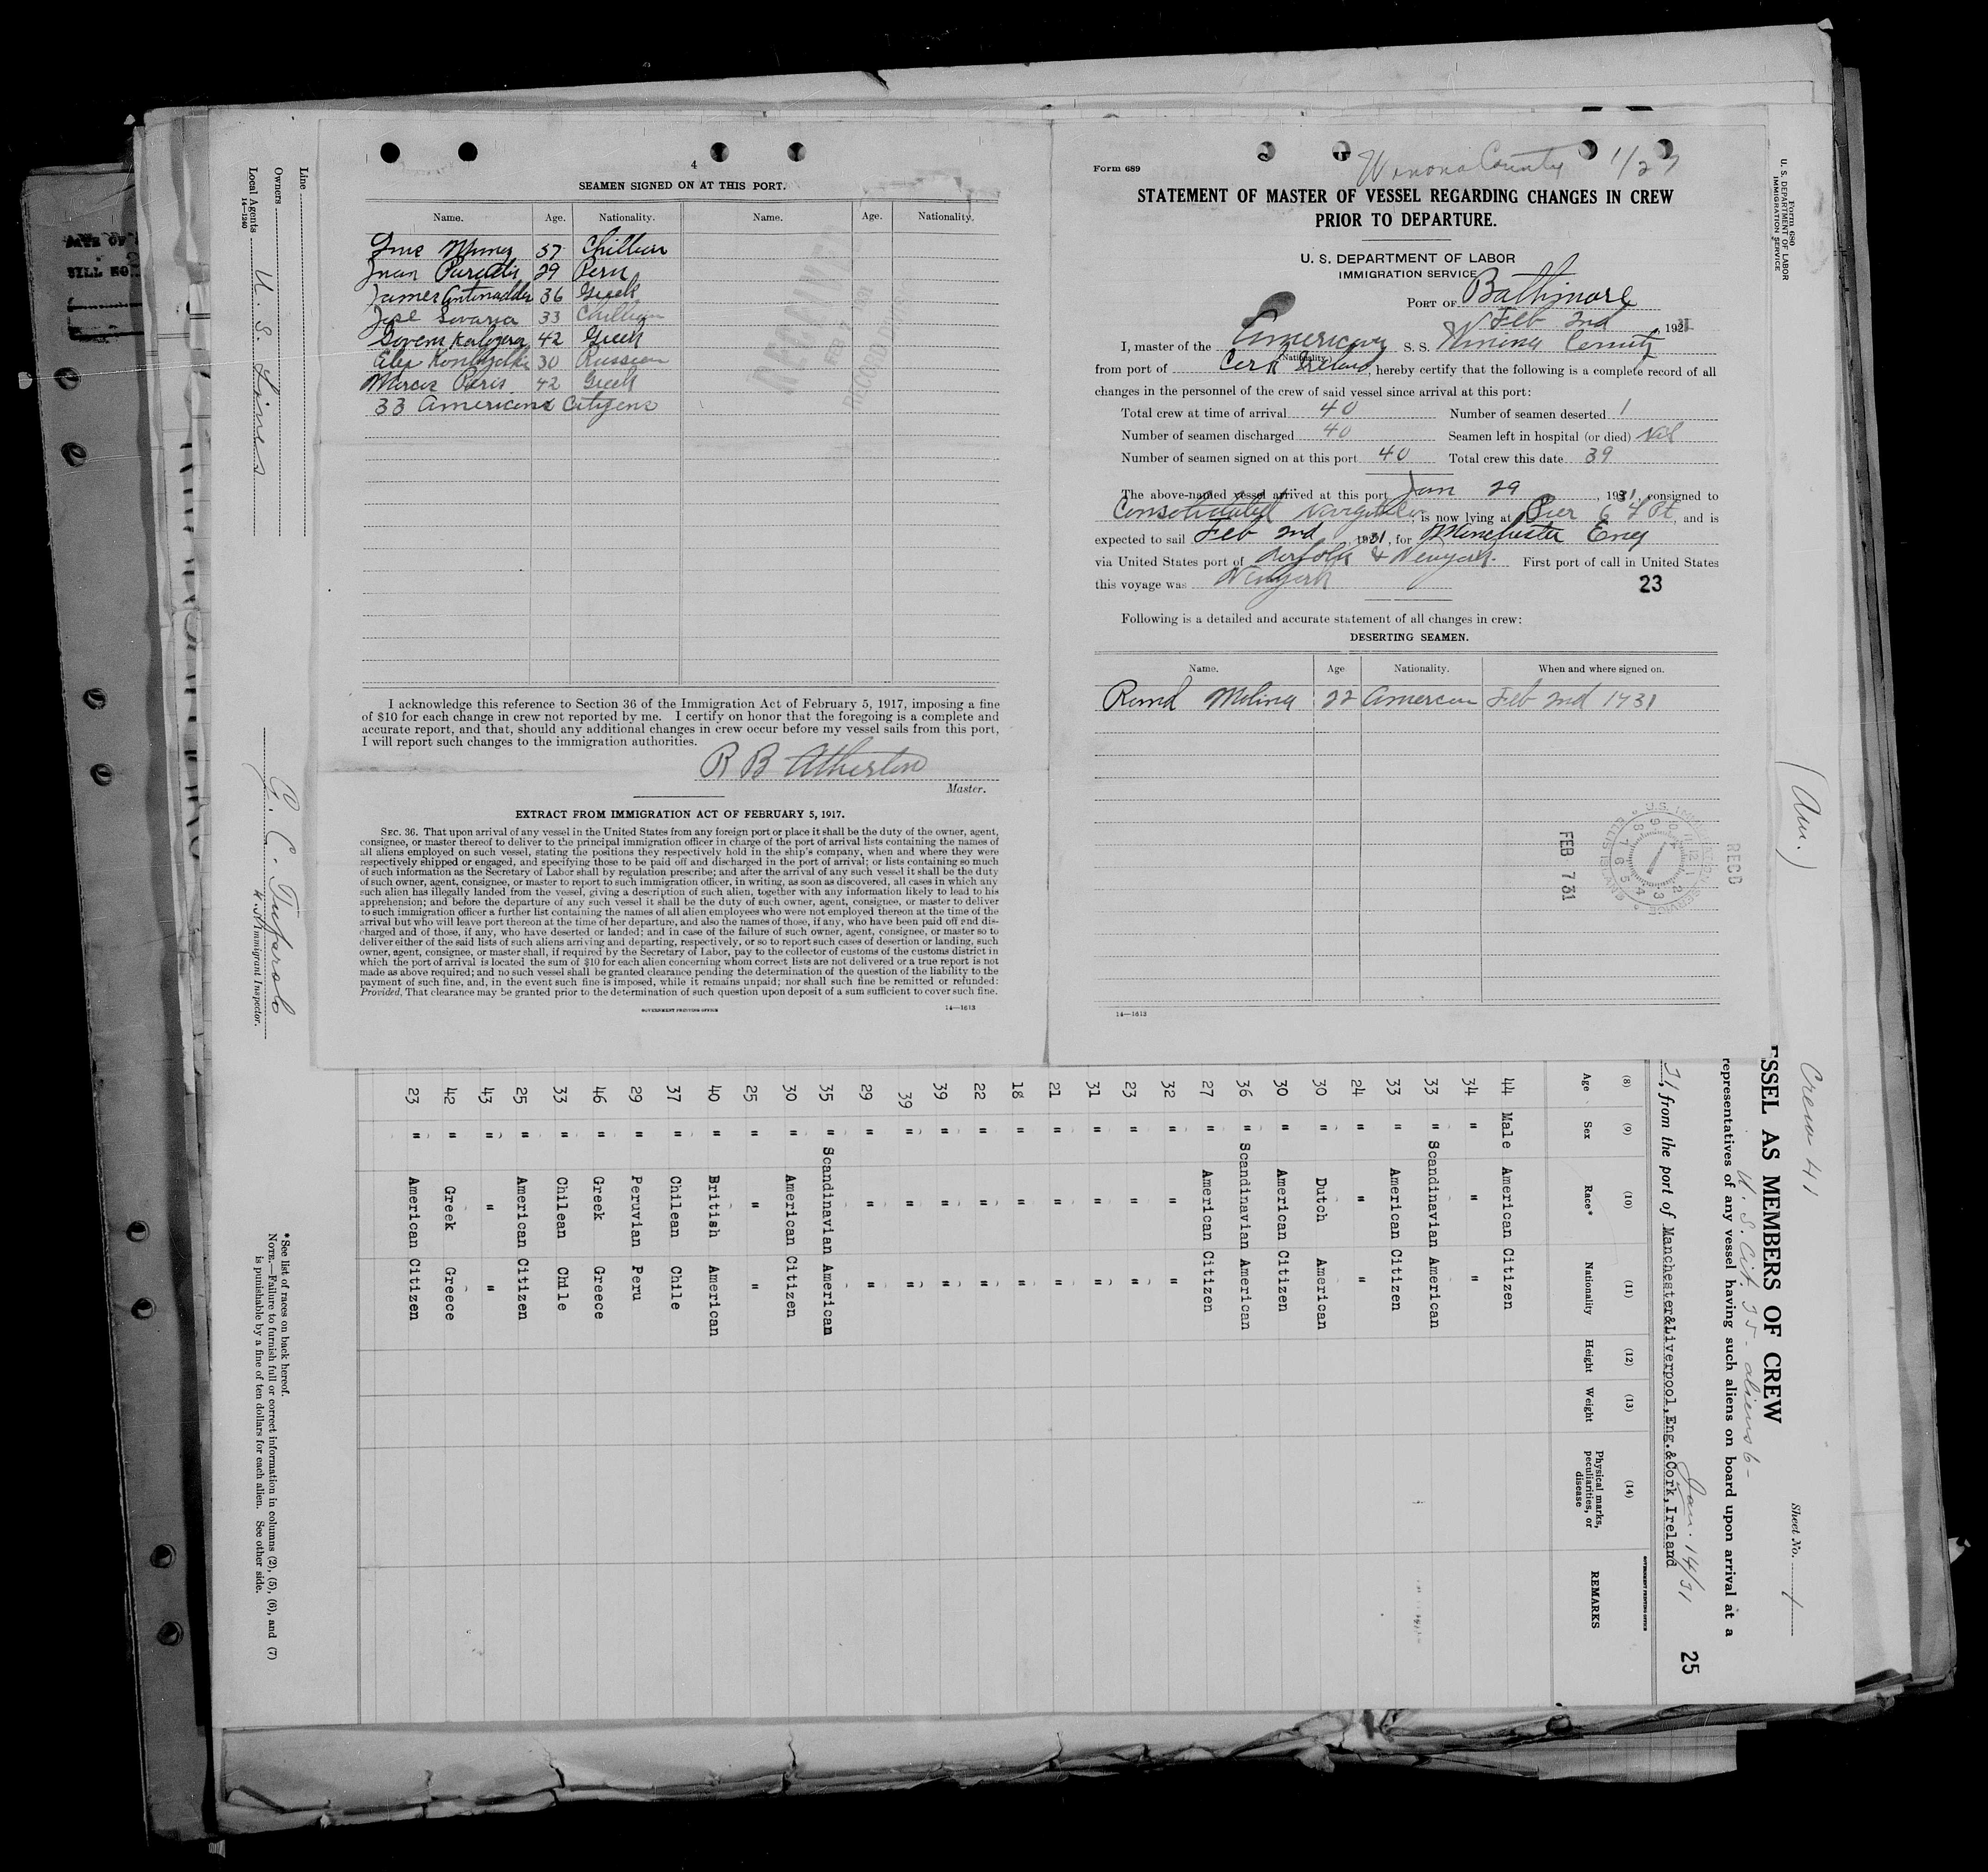 4
SEAMEN SIGNED ON AT THIS PORT.
Name. Age. Nationality. Name. Age. Nationality.
57 Chillian
Juan Paredes 29 Peru
James 36 Greek
Jose 33 Chillian
42 Greek
Alex 30 Russian
Marcos Paris 42 Greek
33 Americans Citizens
I acknowledge this reference to Section 36 of the Immigration Act of February 5, 1917, imposing a fine
of $10 for each change in crew not reported by me. I certify on honor that the foregoing is a complete and
accurate report, and that, should any additional changes in crew occur before my vessel sails from this port,
I will report such changes to the immigration authorities.
R B Atherton
Master.
EXTRACT FROM IMMIGRATION ACT OF FEBRUARY 5, 1917.
SEC. 36. That upon arrival of any vessel in the United States from any foreign port or place it shall be the duty of the owner, agent,
consignee, or master thereof to deliver to the principal immigration officer in charge of the port of arrival lists containing the names of
all aliens employed on such vessel, stating the positions they respectively hold in the ship's company, when and where they were
respectively shipped or engaged, and specifying those to be paid off and discharged in the port of arrival; or lists containing so much
of such information as the Secretary of Labor shall by regulation prescribe; and after the arrival of any such vessel it shall be the duty
of such owner, agent, consignee, or master to report to such immigration officer, in writing, as soon as discovered, all cases in which any
such alien has illegally landed from the vessel, giving a description of such alien, together with any information likely to lead to his
apprehension; and before the departure of any such vessel it shall be the duty of such owner, agent, consignee, or master to deliver
to such immigration officer a further list containing the names of all alien employees who were not employed thereon at the time of the
arrival but who will leave port thereon at the time of her departure, and also the names of those, if any, who have been paid off and dis-
charged and of those, if any, who have deserted or landed; and in case of the failure of such owner, agent, consignee, or master so to
deliver either of the said lists of such aliens arriving and departing, respectively, or so to report such cases of desertion or landing, such
owner, agent, consignee, or master shall, if required by the Secretary of Labor, pay to the collector of customs of the customs district in
which the port of arrival is located the sum of $10 for each alien concerning whom correct lists are not delivered or a true report is not
made as above required; and no such vessel shall be granted clearance pending the determination of the question of the liability to the
payment of such fine, and, in the event such fine is imposed, while it remains unpaid; nor shall such fine be remitted or refunded:
Provided, That clearance may be granted prior to the determination of such question upon deposit of a sum sufficient to cover such fine.
GOVERNMENT PRINTING OFFICE
14—1613
Winona County 1/27
Form 689
STATEMENT OF MASTER OF VESSEL REGARDING CHANGES IN CREW
PRIOR TO DEPARTURE.
U. S. DEPARTMENT OF LABOR
IMMIGRATION SERVICE
PORT OF Balthimore
Feb 2nd, 1931
I, master of the American S. S. Winona County
(Nationality)
from port of Cork Ireland, hereby certify that the following is a complete record of all
changes in the personnel of the crew of said vessel since arrival at this port:
Total crew at time of arrival 40 Number of seamen deserted 1
Number of seamen discharged 40 Seamen left in hospital (or died) Nil
Number of seamen signed on at this port 40 Total crew this date 39
The above-named vessel arrived at this port Jan 29, 1931, consigned to
Consolidated, is now lying at Pier 6 L Pt, and is
expected to sail Feb 2nd, 1931, for Manchester Eng
via United States port of Norfolk & Newyork. First port of call in United States
this voyage was Newyork
23
Following is a detailed and accurate statement of all changes in crew:
DESERTING SEAMEN.
Name. Age Nationality. When and where signed on.
Molina 22 American Feb 2nd 1931
FEB 7 31
RECD
14—1613
Form 680
U. S. DEPARTMENT OF LABOR
IMMIGRATION SERVICE
(Am.)
Crew 41
Sheet No. 1
SSEL AS MEMBERS OF CREW
U. S. Cit. 35 - aliens 6 -
representatives of any vessel having such aliens on board upon arrival at a
Jan. 14/31
31, from the port of Manchester&Liverpool,Eng.&Cork,Ireland
25
GOVERNMENT PRINTING OFFICE
(8) (9) (10) (11) (12) (13) (14)
Age Sex Race* Nationality Height Weight Physical marks, peculiarities, or disease REMARKS
44 Male American Citizen
34 " " "
33 " Scandinavian American
33 " American Citizen
24 " " "
30 " Dutch American
30 " American Citizen
36 " Scandinavian American
27 " American Citizen
32 " " "
23 " " "
31 " " "
21 " " "
18 " " "
22 " " "
39 " " "
39 " " "
29 " " "
35 " Scandinavian American
30 " American Citizen
25 " " "
40 " British American
37 " Chilean Chile
29 " Peruvian Peru
46 " Greek Greece
33 " Chilean Chile
25 " American Citizen
43 " " "
42 " Greek Greece
23 " American Citizen
Line
Owners
Local Agents U. S. Lines
14—1240
G. C. Tufarolo
U. S. Immigrant Inspector.
*See list of races on back hereof.
NOTE.—Failure to furnish full or correct information in columns (2), (5), (6), and (7)
is punishable by a fine of ten dollars for each alien. See other side.